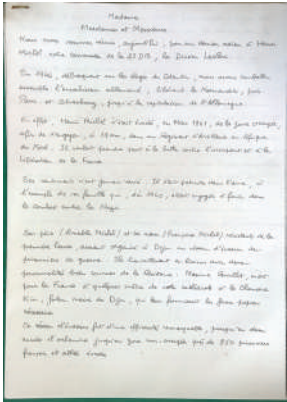 Madame
Mesdames et Messieurs
Nous nous sommes réunis, aujourd'hui, pour un dernier adieu à Henri
Michel notre camarade de la 2e DB, la Division Leclerc.
En 1944, débarquant sur les plages du Cotentin, nous avons combattu
ensemble l'envahisseur allemand, libéré la Normandie, puis
Paris et Strasbourg, jusqu'à la capitulation de l'Allemagne.
En effet, Henri Michel s'était évadé, en Mai 1941, de la zone occupée,
afin de s'engager, à 18 ans, dans un régiment d'Artillerie en Afrique
du Nord. Il voulait prendre part à la lutte contre l'occupant et à la
libération de la France.
Ses sentiments n'ont jamais varié. Il était patriote dans l'âme, à
l'exemple de sa famille qui, dès 1940, s'était engagée à fond dans
le combat contre les Nazis.
Son père (Michel) et sa mère (Michel), résistants de la
première heure, avaient organisé à Dijon un réseau d'évasion de
prisonniers de guerre. Ils travaillaient en liaison avec deux
personnalités bien connues de la Résistance: Maxime Guillot, mort
pour la France à quelques mètres de cette cathédrale et le Chanoine
Kir, futur maire de Dijon, qui leur fournissait les faux papiers
nécessaires
Ce réseau d'évasion fut d'une efficacité remarquable, puisqu'en deux
mois d'existence jusqu'en juin on compte près de 850 prisonniers
français et alliés évadés